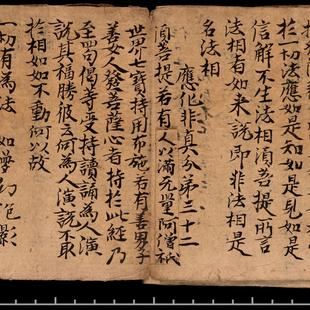 於一切法應如是知如是見如是
信解不生法相須菩提所言
法相者如来說即非法相是
名法相
應化非真分第三十二
須菩提若有人以滿无量阿僧祇
世界七寶持用布施若有善男子
善女人發菩薩心者持於此經乃
至四句偈等受持讀誦為人演
說其福勝彼云何為人演說不取
於相如如不動何以故
一切有為法 如夢幻泡影